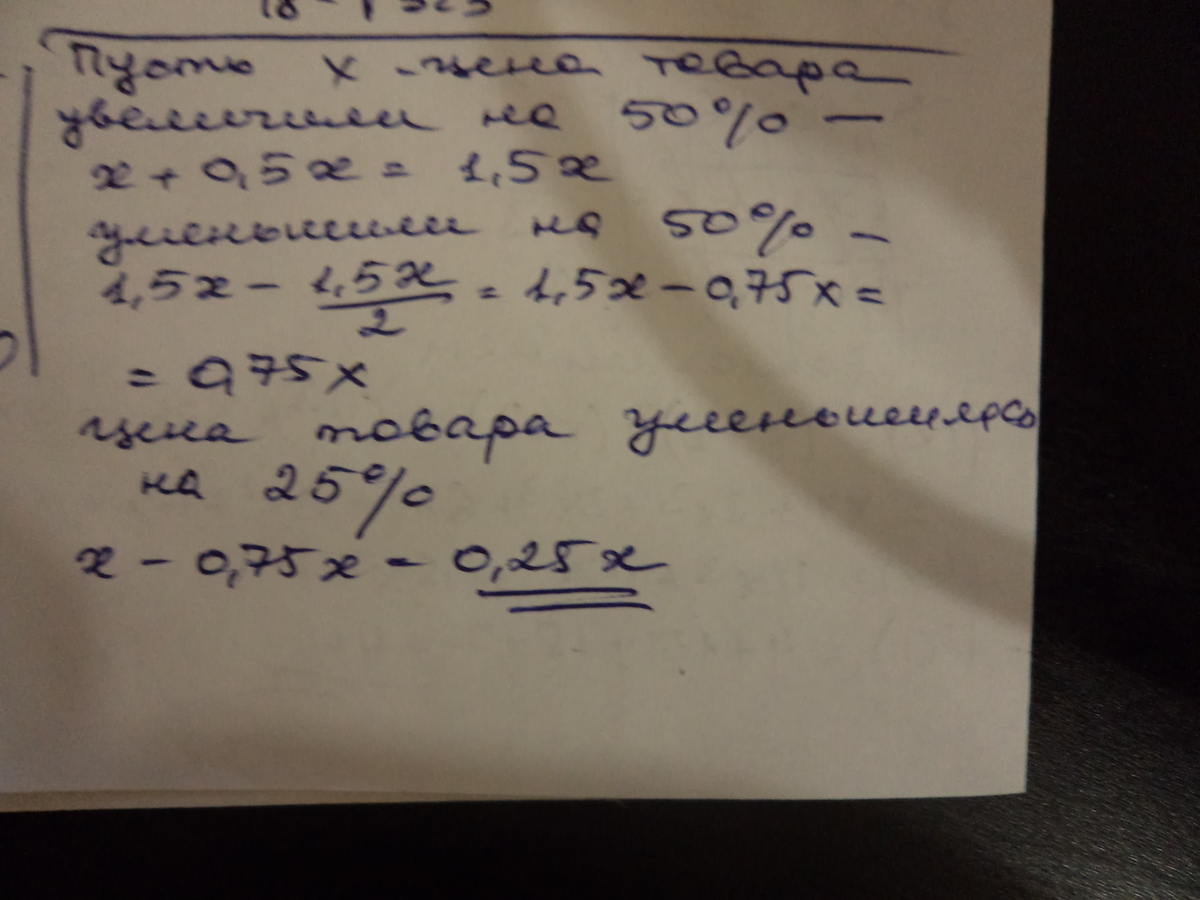 Пусть х - цена товара
увеличили на 50% —
x + 0,5x = 1,5x
уменьшили на 50% —
1,5x - 1,5x/2 = 1,5x - 0,75x =
= 0,75x
цена товара уменьшилась
на 25%
x - 0,75x = 0,25x